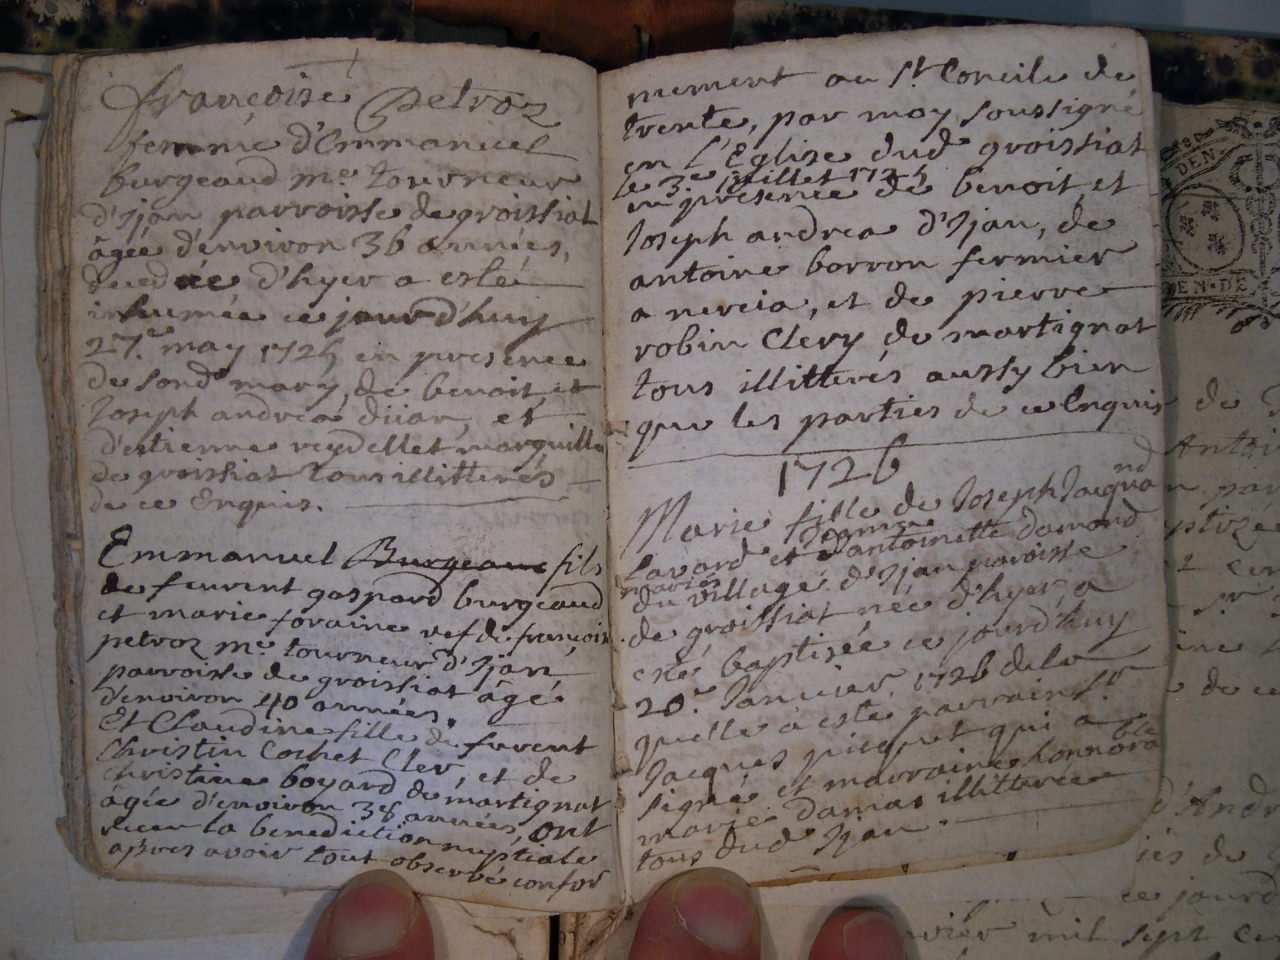 françoise Petroz
femme d'Emmanuel
burgeaud me. tourneur
d'Ijan parroisse de groissiat
âgée d'environ 36 années,
decedée d'hyer a esté
inhumée ce jourd'huy
27.e may 1725 en presence
de sond. mary, de benoit, et
Joseph andrea dijan, et
d'estienne reydellet marguillr
de groissiat tous illitterés
de ce Enquis.
Emmanuel Burgeaux fils
de feuvent gaspard burgeaud
et marie foraine vef de françoise
petroz me. tourneur d'Ijan
parroisse de groissiat âgé
d'environ 40 années.
Et Claudine fille de fuvent
Christin Cochet Cler, et de
Christine boyard de martignat
âgée d'environ 38 années, ont
receu la benediction nuptiale
apres avoir tout observé confor
nement au St. Concile de
trente, par moy soussigné
en l'Eglise dud groissiat
le 3e Juillet 1725
en presence de benoit et
Joseph andrea d'Ijan, de
antoine borron fermier
a nercia, et de pierre
robin Clery de martignat
tous illitterés aussy bien
que les parties de ce Enquis
1726
Marie fille de Joseph Jacquand
Lavard et d'antoinette damond
mariés
du village d'Ijan paroisse
de groissiat née d'hyer, a
esté baptisée ce jourd'huy
20.e Janvier 1726 de la
quelle a esté parrain Sr
Jacques picquet qui a
signé et marraine honnorable
marie damas illitterée
tous dud Ijan.